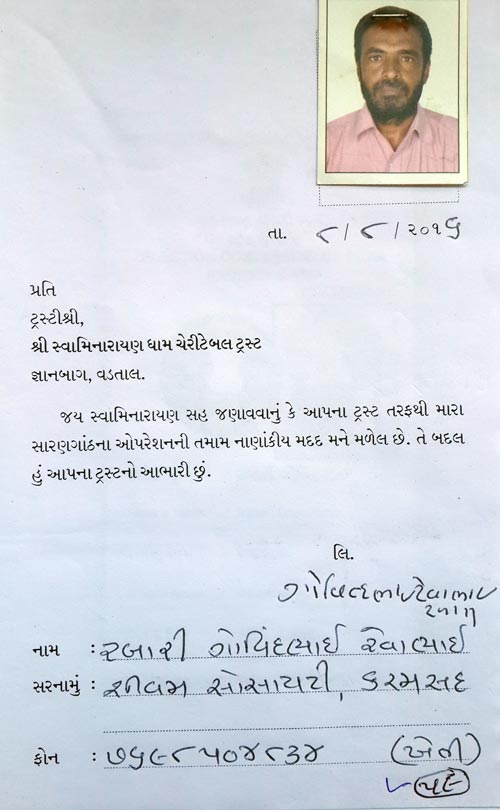 તા. ૮/૮/૨૦૧૬
પ્રતિ
ટ્રસ્ટીશ્રી,
શ્રી સ્વામિનારાયણ ધામ ચેરીટેબલ ટ્રસ્ટ
જ્ઞાનબાગ, વડતાલ.
જય સ્વામિનારાયણ સહ જણાવવાનું કે આપના ટ્રસ્ટ તરફથી મારા
સારણગાંઠના ઓપરેશનની તમામ નાણાંકીય મદદ મને મળેલ છે. તે બદલ
હું આપના ટ્રસ્ટનો આભારી છું.
લિ.
નામ : રબારી ગોવિંદભાઈ રેવાભાઈ
સરનામું : શીવમ સોસાયટી, કરમસદ
ફોન : ૭૫૬૮૫૦૪૮૩૪ (ખેતી)